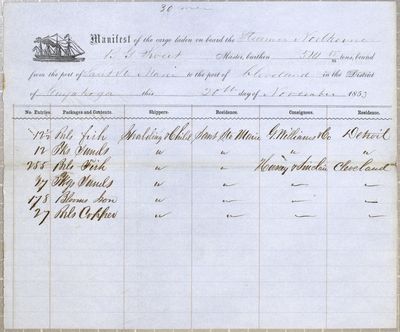 30 
Manifest of the cargo laden on board the Steamer
B G Sweet Master, burthen tons, bound
from the port of Saut Ste Marie to the port of Cleveland in the District
of Cuyahoga this 20th day of November 1853
No. Entries. Packages and Contents. Shippers. Residence. Consignees. Residence.
Bbls Fish Spalding & Child Saut Ste Marie G Williams & Co Detroit
12 Pks Sands " " " "
255 Bbls Fish " " Hussey & Sinclair Cleveland
97 Pkgs Sands " " " "
178 Blooms Iron " " " "
27 Bbls Copper " " " "